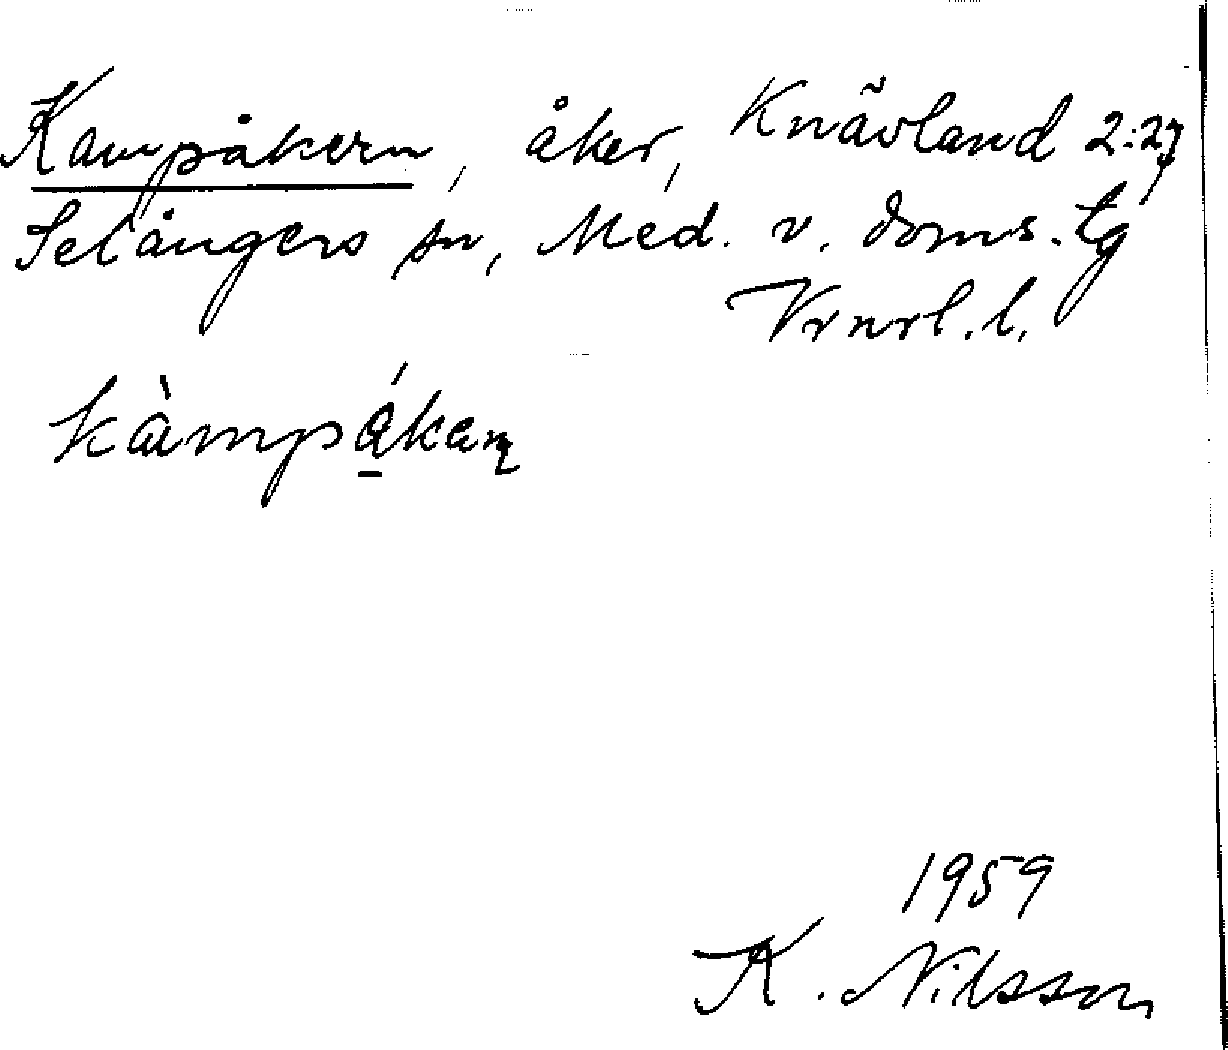 Kampåkern, åker, Knävland 2:27,
Selångers sn, Med. v. doms. tg
Vrnrl. l.
kàmpá̱kaɳ
1959
K. Nilsson